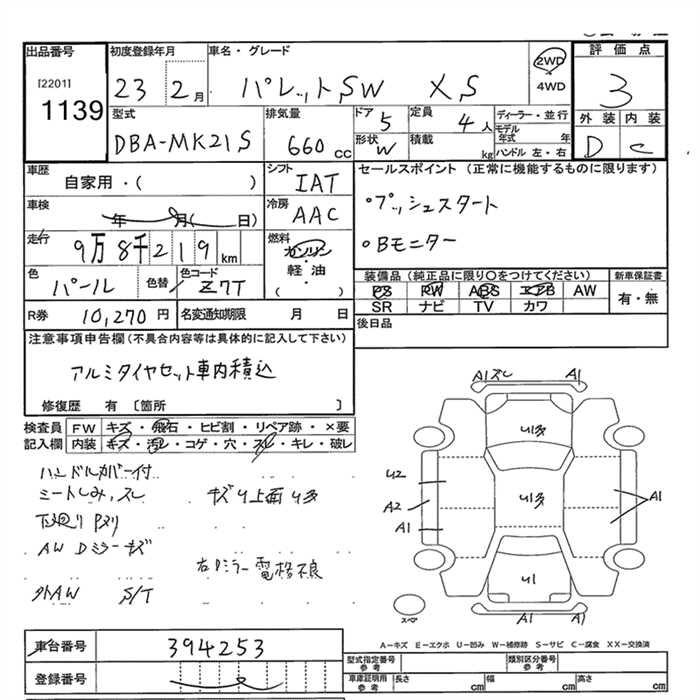 出品番号 初度登録年月 車名・グレード 評価点
[2201]
1139
23 2月 パレットSW XS 2WD 4WD 3
外装 内装
D C
型式 排気量 ドア 定員 ディーラー・並行
DBA-MK21S 660cc 5 4人 モデル年式 年
形状 W 積載 kg ハンドル 左・右
車歴 シフト セールスポイント (正常に機能するものに限ります)
自家用・( ) IAT
車検 冷房
年 月( 日) AAC
・プッシュスタート
走行 燃料
9万8千219km ガソリン ・Bモニター
軽・油
( ・ )
色 色替 色コード
パール Z7T
装備品 (純正品に限り○をつけてください) 新車保証書
PS PW ABS エアB AW 有・無
SR ナビ TV カワ
R券 10,270円 名変通知期限 月 日
後日品
注意事項申告欄(不具合内容等は具体的に記入して下さい)
アルミタイヤセット車内積込
修復歴 有 〔箇所 〕
検査員 FW キズ・飛石・ヒビ割・リペア跡・×要
記入欄 内装 キズ・汚レ・コゲ・穴・スレ・キレ・破レ
ハンドルカバー付
シートしみ,スレ キズU上面U多
下廻りPヌリ
AW Dミラーキズ
右Dミラー電格不良
外AW S/T
A1スレ A1
U多
U2
A2 U多 A1
A1
U1
スペア A1 A1
A－キズ E－エクボ U－凹み W－補修跡 S－サビ C－腐食 XX－交換済
車台番号 394253
型式指定番号 参考 類別区分番号 参考
登録番号
車庫証明用 参考 長さ cm 幅 cm 高さ cm